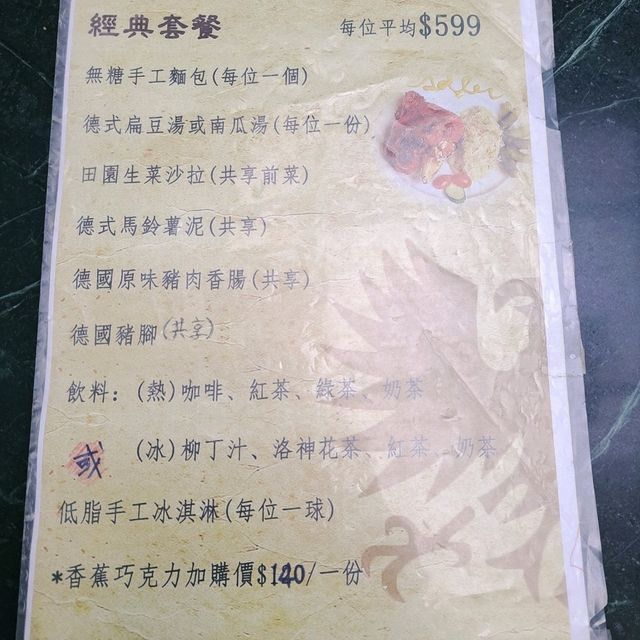 經典套餐 每位平均$599
無糖手工麵包(每位一個)
德式扁豆湯或南瓜湯(每位一份)
田園生菜沙拉(共享前菜)
德式馬鈴薯泥(共享)
德國原味豬肉香腸(共享)
德國豬腳(共享)
飲料：(熱)咖啡、紅茶、綠茶、奶茶
或 (冰)柳丁汁、洛神花茶、紅茶、奶茶
低脂手工冰淇淋(每位一球)
*香蕉巧克力加購價$140/一份